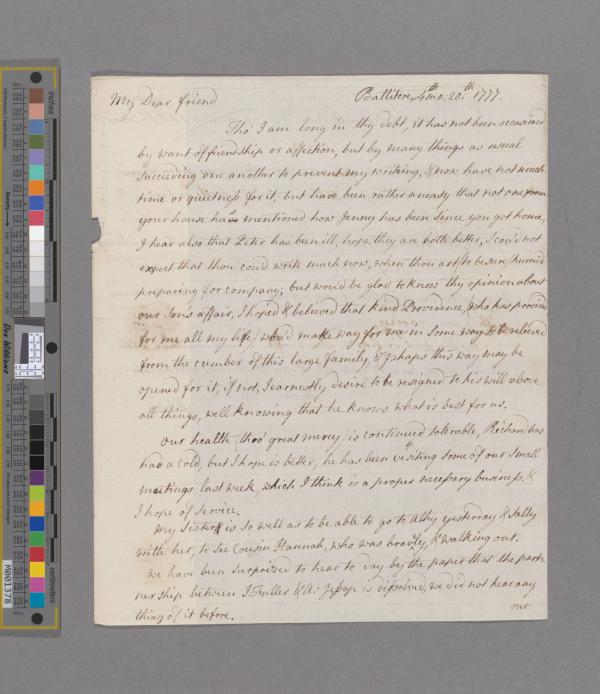 My Dear friend
Ballitore 4th mo: 20:th 1777.
Tho' I am long in thy debt, it has not been occasioned
by want of friendship or affection, but by many things as usual
succeeding one another to prevent my writing, & now have not much
time or quietness for it, but have been rather uneasy that not one from
your house has mentioned how Jenny has been since you got home,
I hear also that Peter has been ill, hope they are both better, I coud not
expect that thou coud write much now, when thou art to be sure hurried
preparing for company; but woud be glad to know thy opinion about
our Son's affair, I hoped & believed that kind Providence (who has provided
for me all my life) woud make way for me in some way to be relieved
from the cumber of this large family, & perhaps this way may be
opened for it, if not, I earnestly desire to be resigned to his will above
all things, well knowing that he knows what is best for us.
Our health (thro' great mercy) is continued tolerable, Richard has
had a cold but I hope is better, he has been visiting some of our small
meetings last week, which I think is a proper necessary business, &
I hope of service.
My Sister is so well as to be able to go to Athy yesterday & Sally
with her, to see Cousin Hannah, who was bravely, & walking out.
We have been surprized to hear to day by the paper that the part-
nership between J: Fuller & A: Jessop is dissolved, we did not hear any
thing of it before.
our
Inches
centimeters
Don Williams
M001378